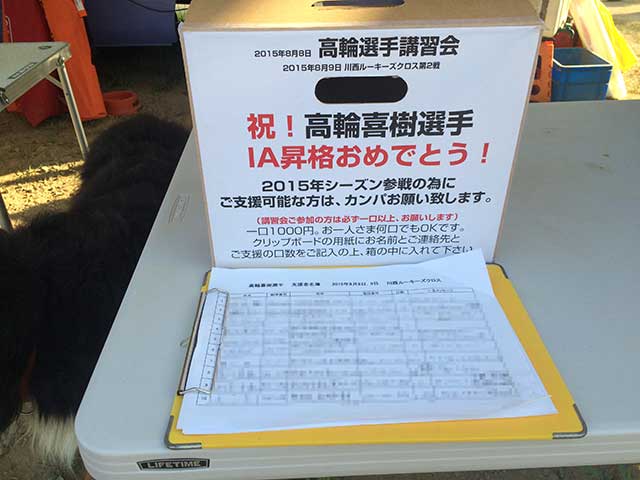 2015年8月8日 高輪選手講習会
2015年8月9日 川西ルーキーズクロス第2戦
祝！高輪喜樹選手
IA昇格おめでとう！
2015年シーズン参戦の為に
ご支援可能な方は、カンパお願い致します。
（講習会ご参加の方は必ず一口以上、お願いします）
一口1000円。お一人さま何口でもOKです。
クリップボードの用紙にお名前とご連絡先と
ご支援の口数をご記入の上、箱の中に入れて下さい
高輪喜樹選手 支援金名簿 2015年8月8日、9日 川西ルーキーズクロス
LIFETIME